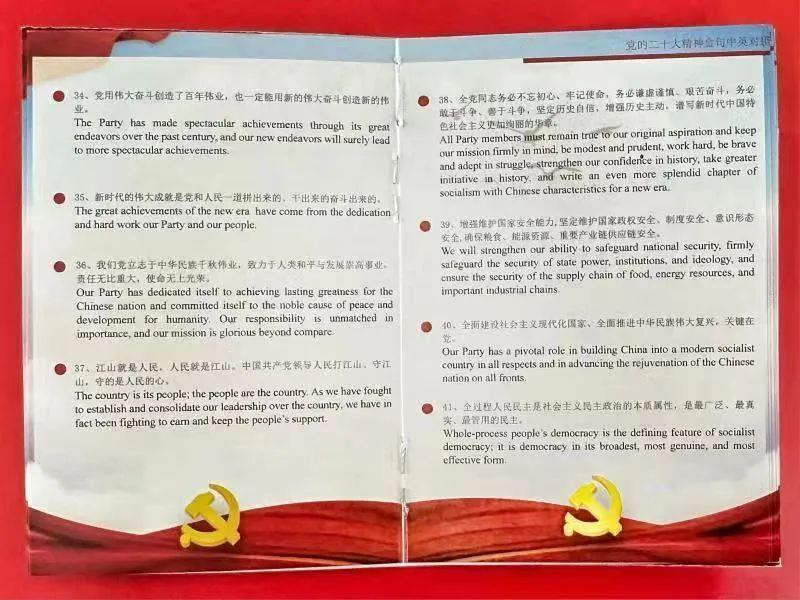 34、党用伟大奋斗创造了百年伟业，也一定能用新的伟大奋斗创造新的伟
业。
The Party has made spectacular achievements through its great
endeavors over the past century, and our new endeavors will surely lead
to more spectacular achievements.
35、新时代的伟大成就是党和人民一道拼出来的、干出来的奋斗出来的。
The great achievements of the new era have come from the dedication
and hard work our Party and our people.
36、我们党立志于中华民族千秋伟业，致力于人类和平与发展崇高事业，
责任无比重大，使命无上光荣。
Our Party has dedicated itself to achieving lasting greatness for the
Chinese nation and committed itself to the noble cause of peace and
development for humanity. Our responsibility is unmatched in
importance, and our mission is glorious beyond compare.
37、江山就是人民，人民就是江山。中国共产党领导人民打江山、守江
山，守的是人民的心。
The country is its people; the people are the country. As we have fought
to establish and consolidate our leadership over the country, we have in
fact been fighting to earn and keep the people's support.
党的二十大精神金句中英对照
38、全党同志务必不忘初心、牢记使命，务必谦虚谨慎、艰苦奋斗，务必
敢于斗争、善于斗争，坚定历史自信，增强历史主动，谱写新时代中国特
色社会主义更加绚丽的华章。
All Party members must remain true to our original aspiration and keep
our mission firmly in mind, be modest and prudent, work hard, be brave
and adept in struggle, strengthen our confidence in history, take greater
initiative in history, and write an even more splendid chapter of
socialism with Chinese characteristics for a new era.
39、增强维护国家安全能力,坚定维护国家政权安全、制度安全、意识形态
安全,确保粮食、能源资源、重要产业链供应链安全。
We will strengthen our ability to safeguard national security, firmly
safeguard the security of state power, institutions, and ideology, and
ensure the security of the supply chain of food, energy resources, and
important industrial chains.
40、全面建设社会主义现代化国家、全面推进中华民族伟大复兴，关键在
党。
Our Party has a pivotal role in building China into a modern socialist
country in all respects and in advancing the rejuvenation of the Chinese
nation on all fronts.
41、全过程人民民主是社会主义民主政治的本质属性，是最广泛、最真
实、最管用的民主。
Whole-process people's democracy is the defining feature of socialist
democracy; it is democracy in its broadest, most genuine, and most
effective form.